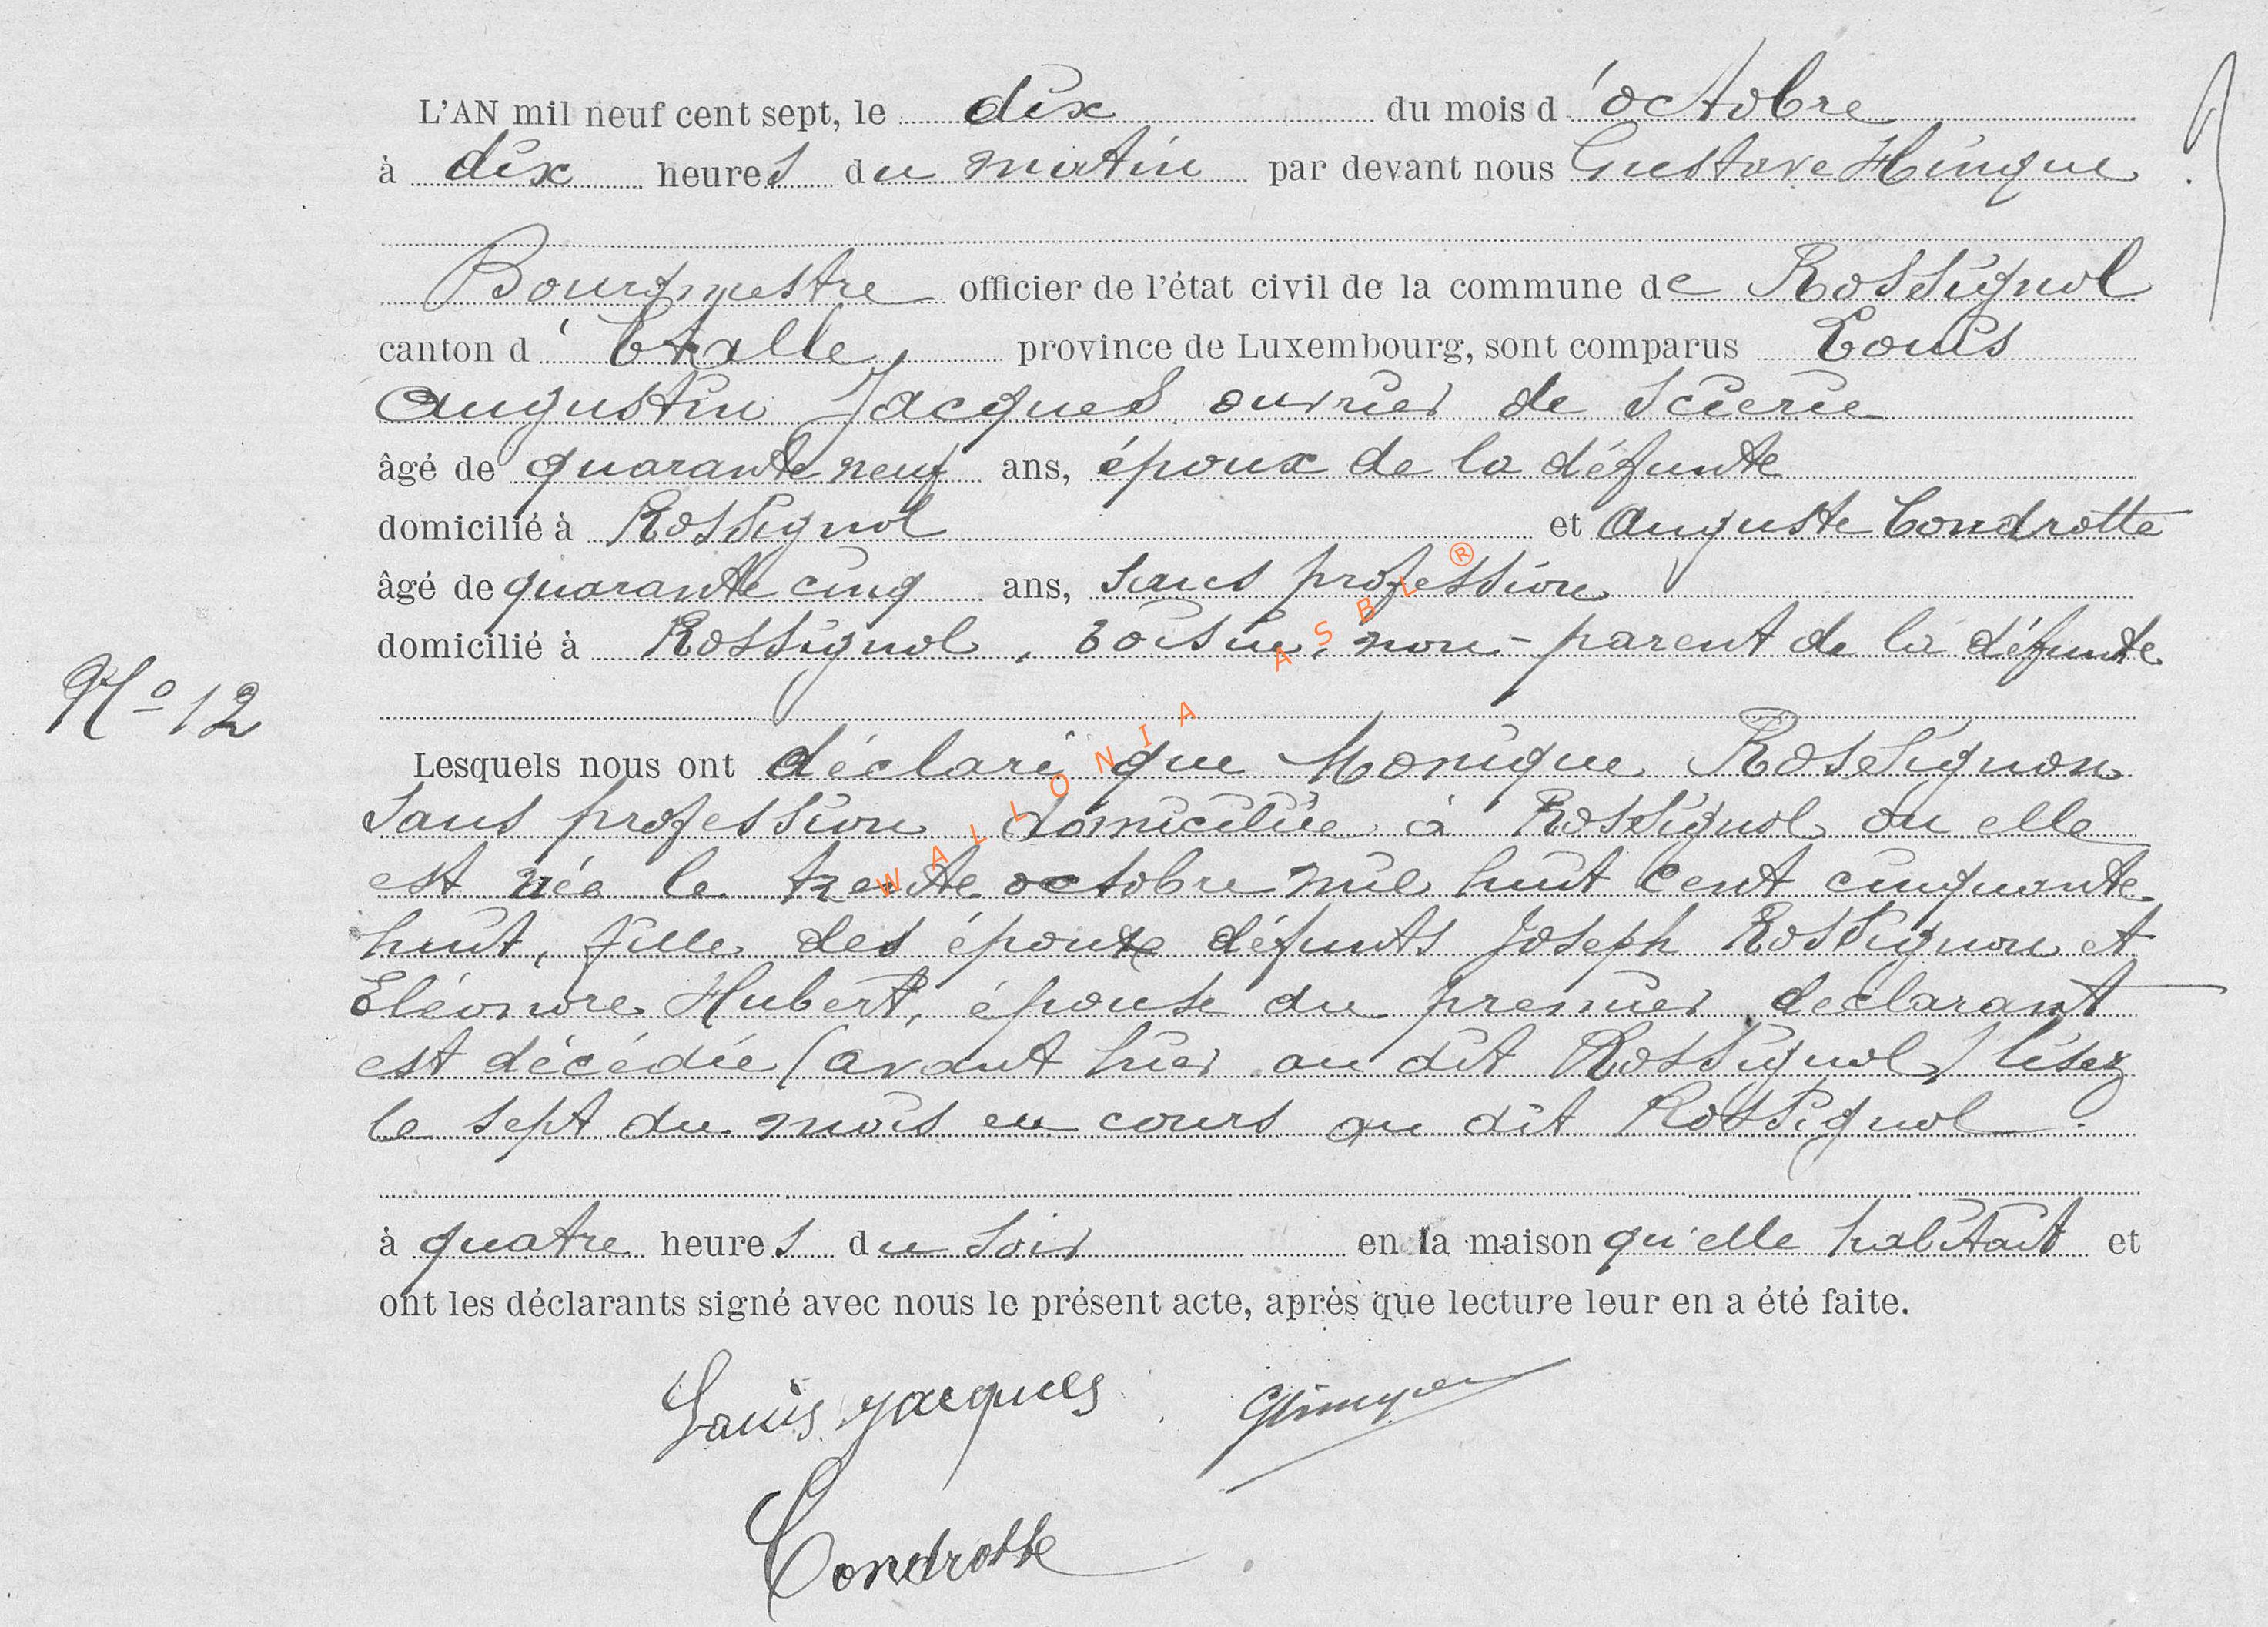 L'AN mil neuf cent sept, le dix du mois d'octobre
à dix heures du matin par devant nous Gustave Hinque
Bourgmestre officier de l'état civil de la commune de Rossignol
canton d'Etalle, province de Luxembourg, sont comparus Louis
Augustin Jacques ouvrier de scierie
âgé de quarante neuf ans, époux de la défunte
domicilié à Rossignol et Auguste Condrotte
âgé de quarante cinq ans, sans profession
domicilié à Rossignol, voisin, non-parent de la défunte
No 12
Lesquels nous ont déclaré que Monique Rossignon
sans profession domiciliée à Rossignol où elle
est née le trente octobre mil huit cent cinquante
huit, fille des époux défunts Joseph Rossignon et
Eléonore Hubert, épouse du premier déclarant
est décédée (avant hier au dit Rossignol) lisez
le sept du mois en cours au dit Rossignol.
à quatre heures du soir en la maison qu'elle habitait et
ont les déclarants signé avec nous le présent acte, après que lecture leur en a été faite.
Louis Jacques
Condrotte
WALLONIA ASBL ®